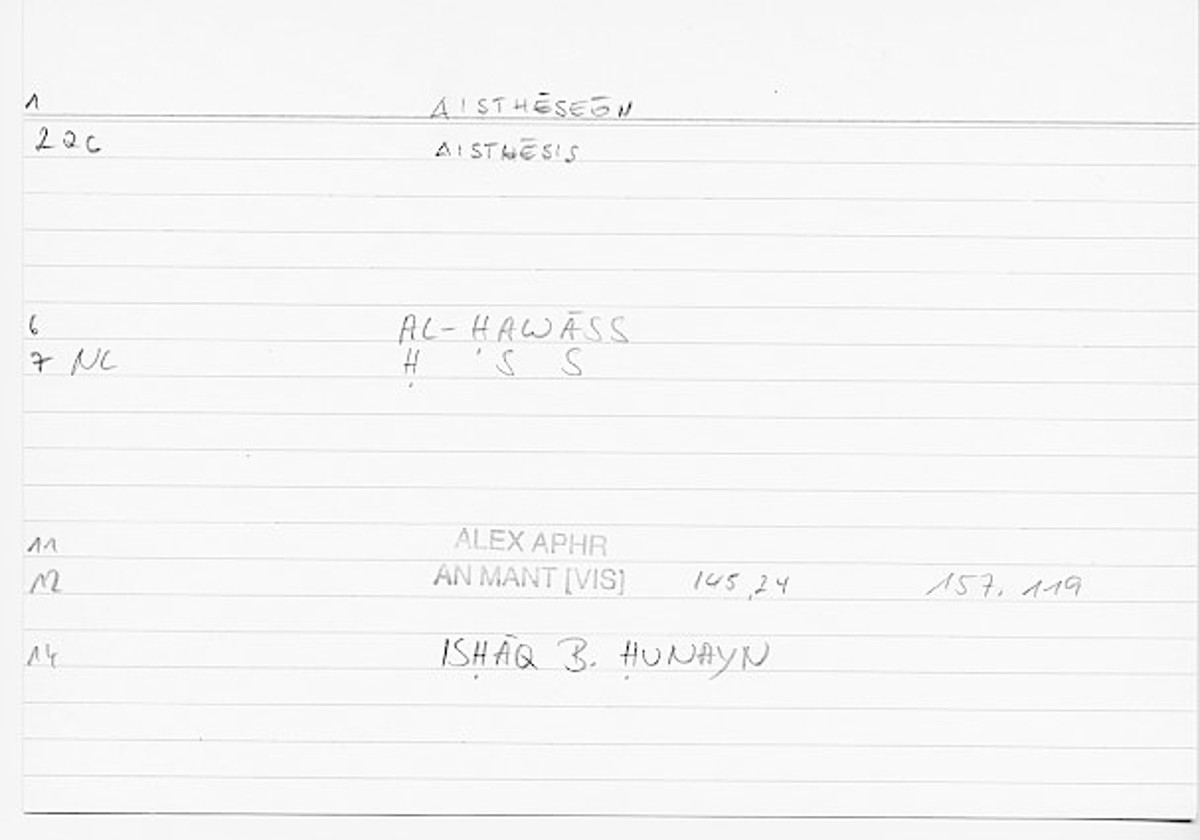 1 AISTHĒSEŌN
2 QC AISTHĒSIS
6 AL-HAWĀSS
7 NL Ḥ ' S S
11 ALEX APHR
12 AN MANT [VIS] 145,24 157. 119
14 ISḤĀQ B. ḤUNAYN